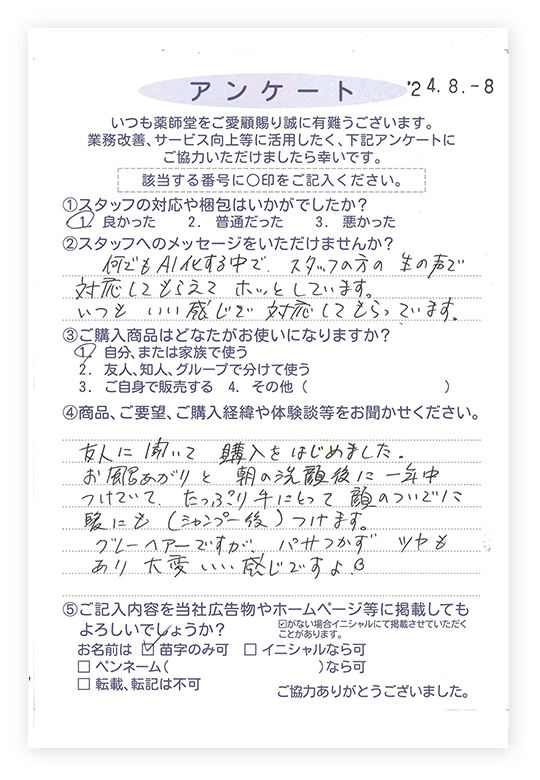 アンケート
'24.8.-8
いつも薬師堂をご愛顧賜り誠に有難うございます。
業務改善、サービス向上等に活用したく、下記アンケートに
ご協力いただけましたら幸いです。
該当する番号に〇印をご記入ください。
①スタッフの対応や梱包はいかがでしたか?
1. 良かった 2. 普通だった 3. 悪かった
②スタッフへのメッセージをいただけませんか?
何でもAI化する中で、スタッフの方の生の声で
対応してもらえて ホッとしています。
いつも いい感じで対応してもらっています。
③ご購入商品はどなたがお使いになりますか?
1. 自分、または家族で使う
2. 友人、知人、グループで分けて使う
3. ご自身で販売する 4. その他( )
④商品、ご要望、ご購入経緯や体験談等をお聞かせください。
友人に聞いて 購入をはじめました。
お風呂あがりと 朝の洗顔後に一年中
つけていて、たっぷり手にとって 顔のついでに
髪にも(シャンプー後)つけます。
グレーヘアーですが、パサつかず ツヤも
あり 大変いい感じですよ。
⑤ご記入内容を当社広告物やホームページ等に掲載しても
よろしいでしょうか?
☑がない場合イニシャルにて掲載させていただく
ことがあります。
お名前は ☑ 苗字のみ可 □ イニシャルなら可
□ ペンネーム( )なら可
□ 転載、転記は不可
ご協力ありがとうございました。